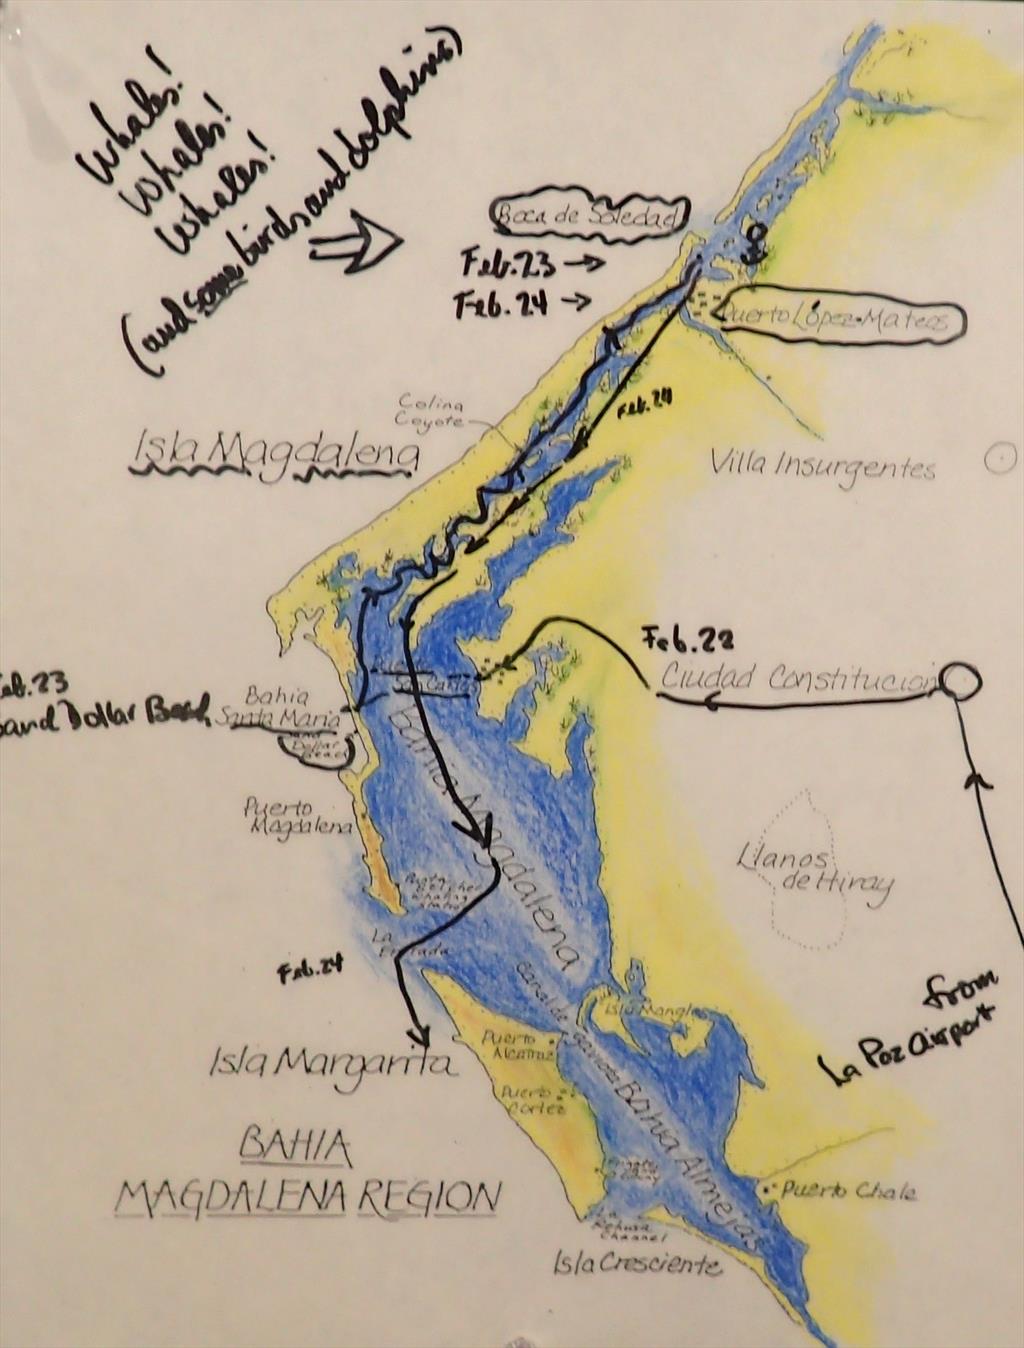 Whales!
Whales!
Whales!
(and some birds and dolphins)
Boca de Soledad
Feb. 23 →
Feb. 24 →
Puerto López Mateos
Feb. 24
Colina
Coyote
Isla Magdalena
Villa Insurgentes
Feb. 22
Ciudad Constitucion
San Carlos
Feb. 23
Sand Dollar Beach
Bahia
Santa Maria
Sand
Dollar
Beach
Bahia Magdalena
Puerto
Magdalena
Llanos
de Hiray
Punta
Belcher
Whaling
Station
La
Entrada
Feb. 24
from
La Paz Airport
Canal de Gaviota
Isla Mangles
Isla Margarita
Puerto
Alcatraz
Puerto
Cortez
Bahia Almejas
BAHIA
MAGDALENA REGION
Puerto Chale
La
Rehusa
Channel
Isla Cresciente